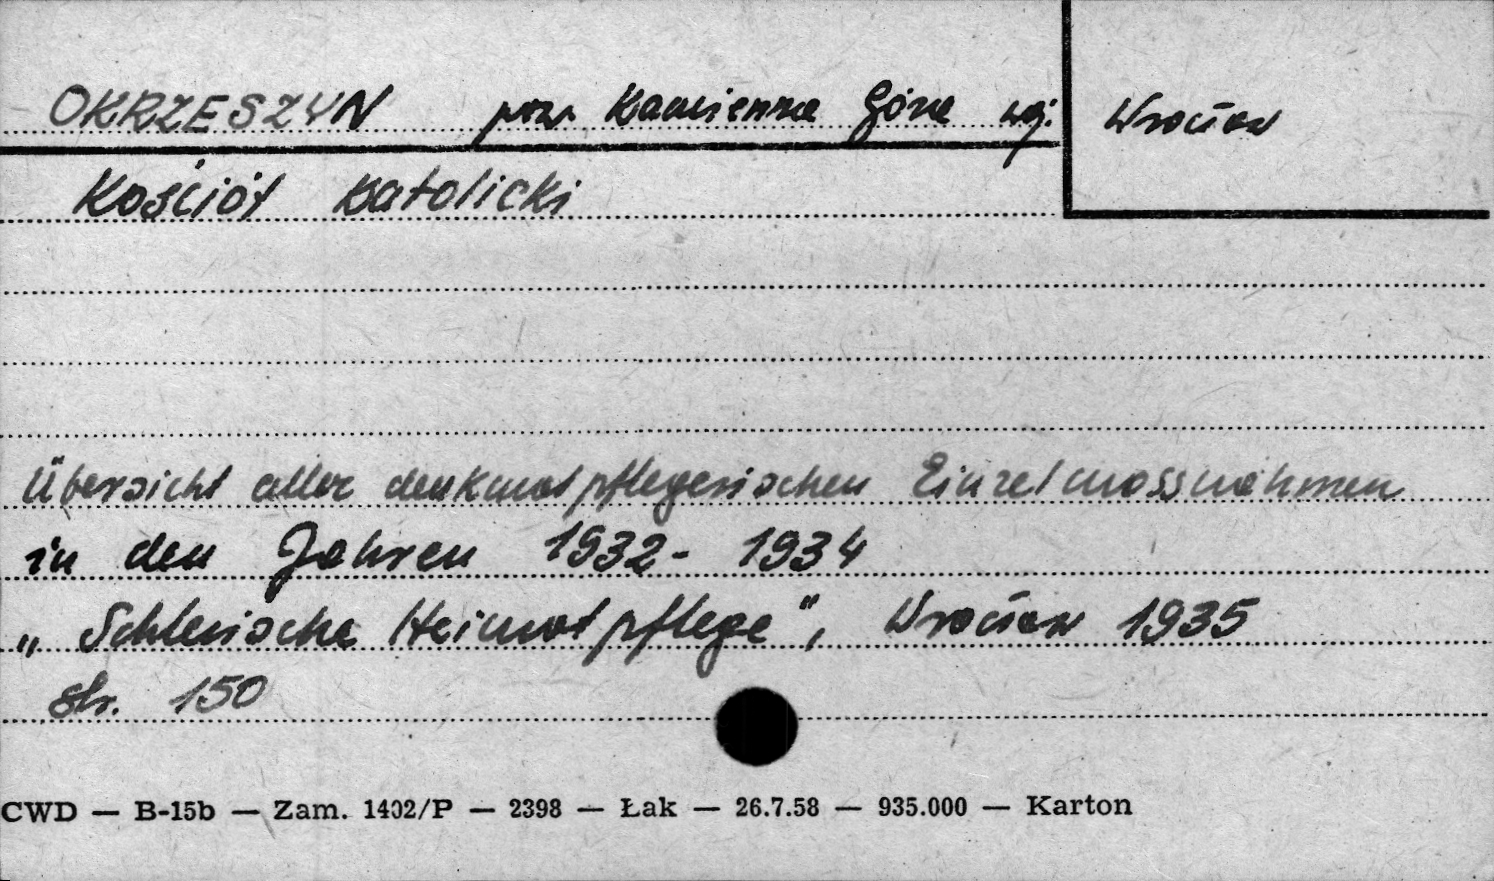 OKRZESZYN pow. Kamienna Góra woj. Wrocław
Kościół Katolicki
Übersicht aller denkmalpflegerischen Einzelmassnahmen
in den Jahren 1932 - 1934
„Schlesische Heimatpflege", Wrocław 1935
str. 150
CWD — B-15b — Zam. 1402/P — 2398 — Łak — 26.7.58 — 935.000 — Karton